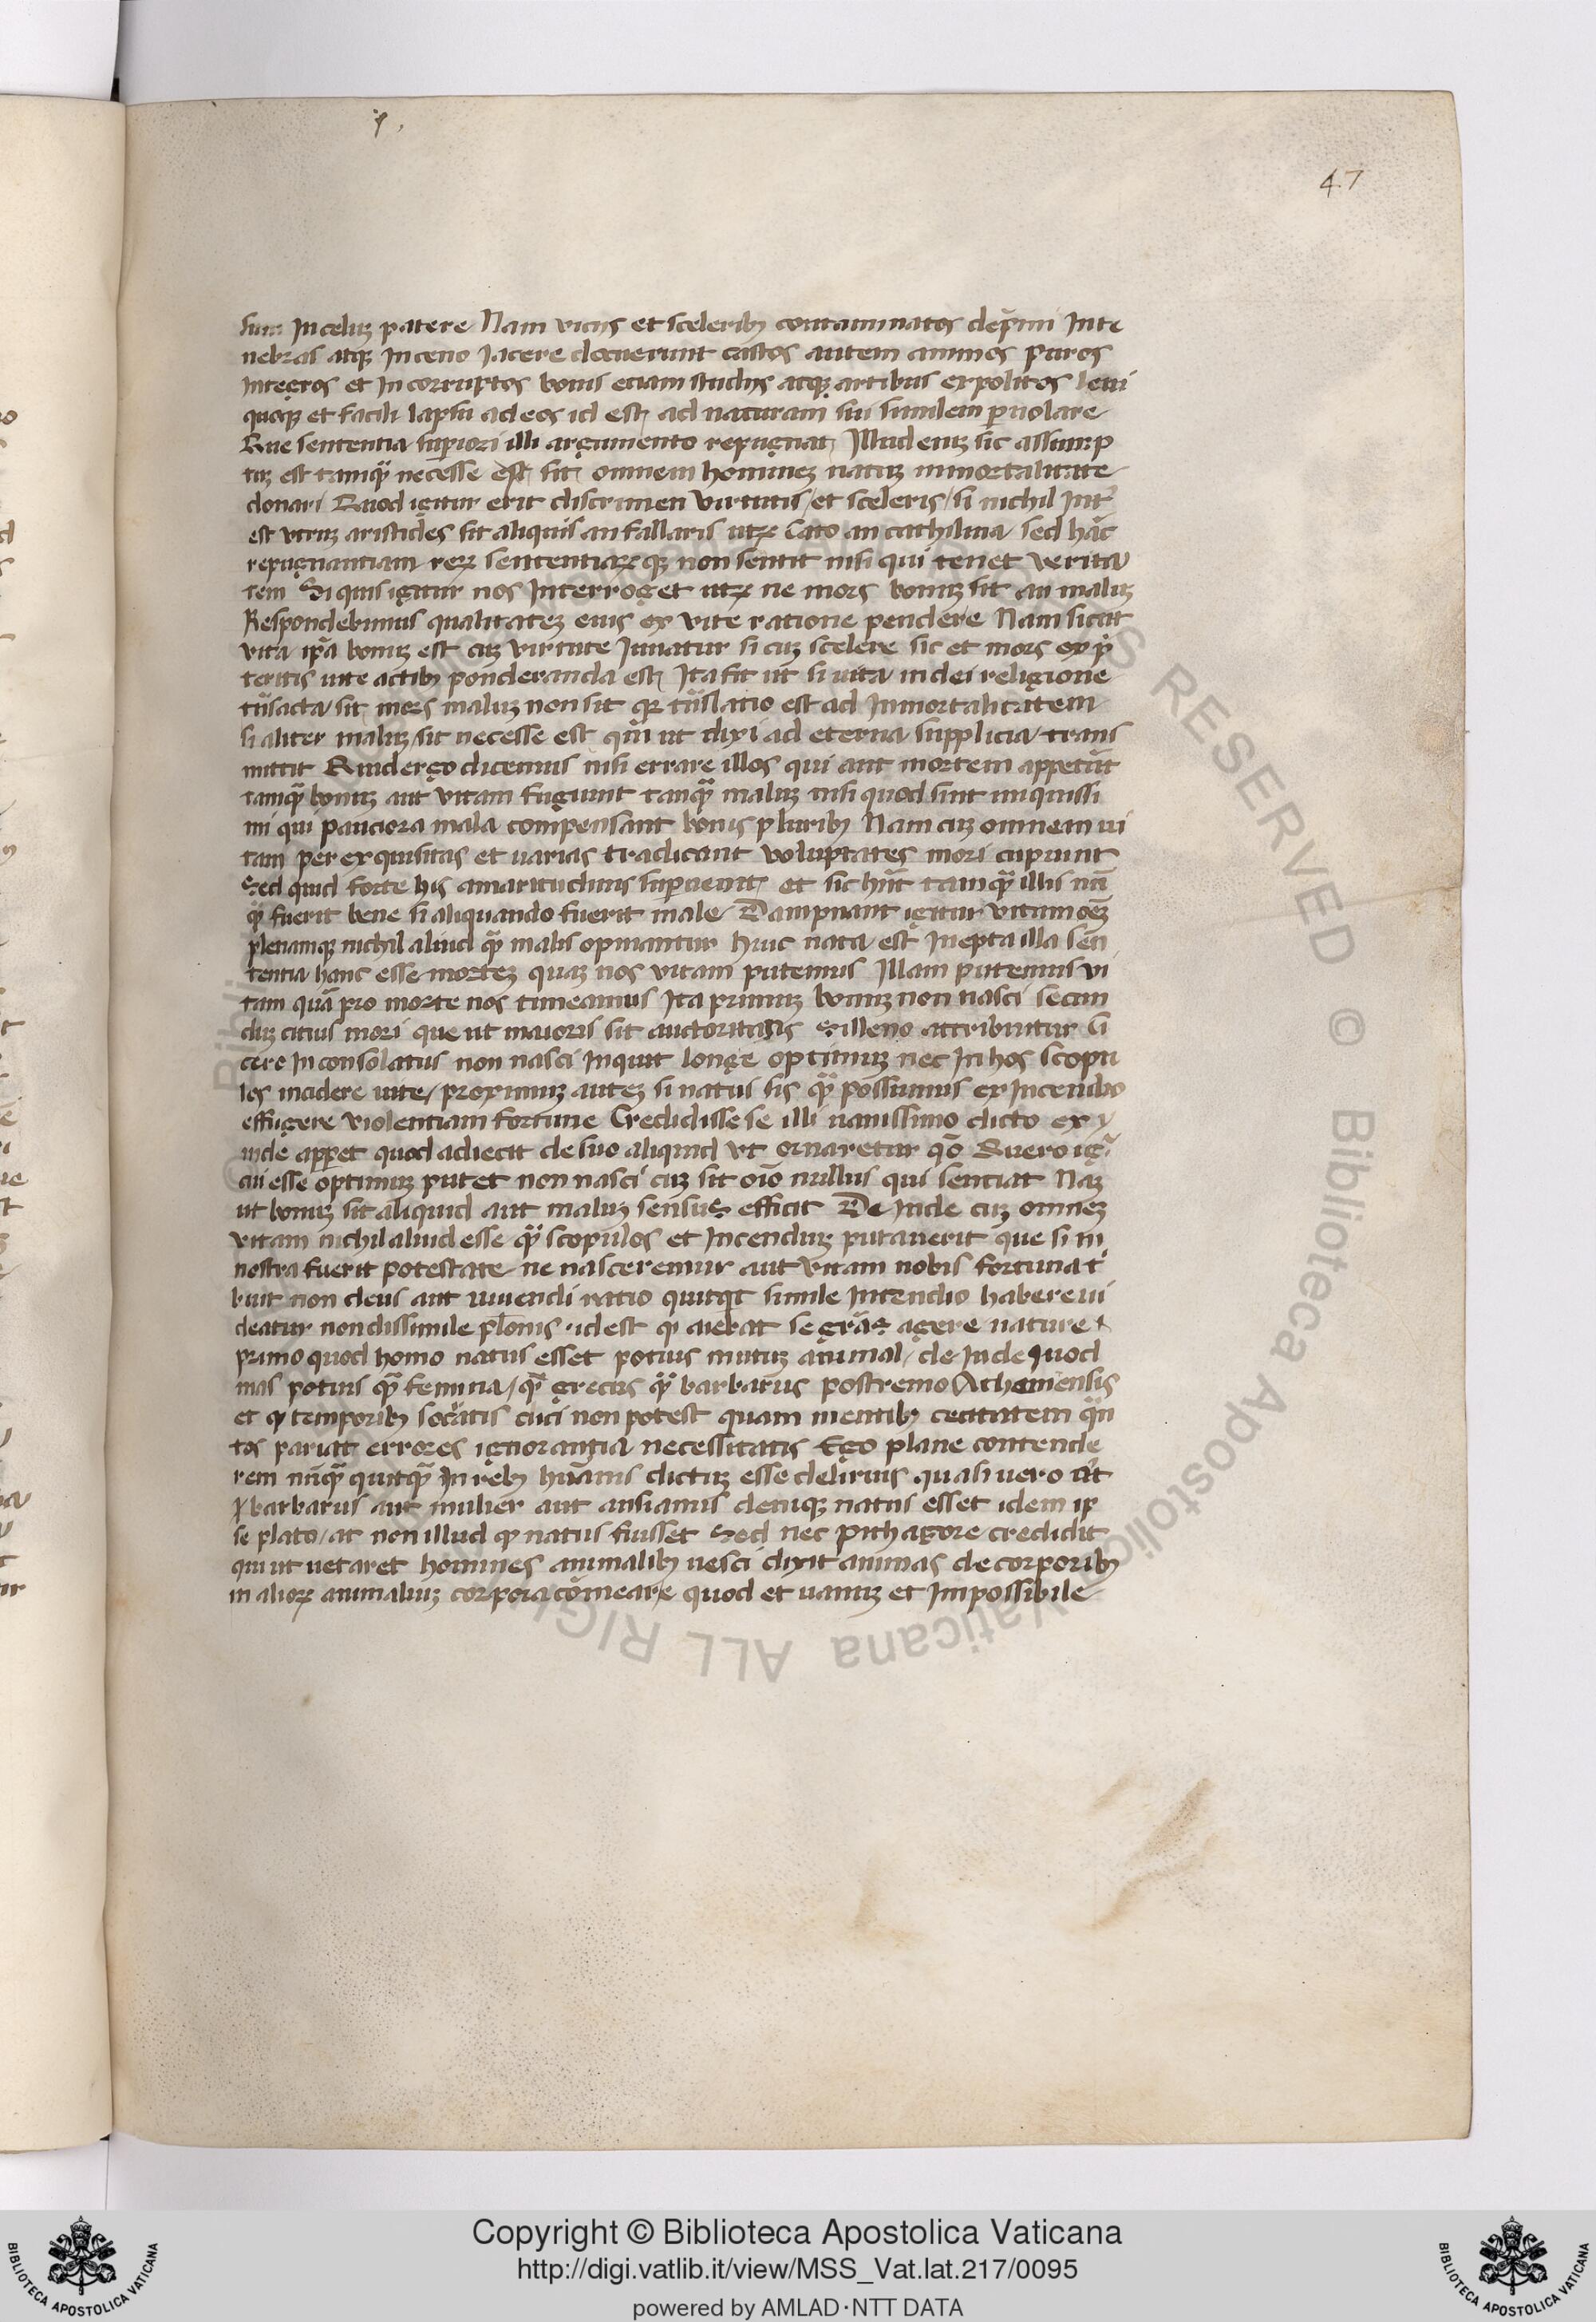 47
sum In celuꝫ patere Nam vicijs et sceleribꝫ contaminatos dep̄mi In te
nebras atqꝫ In ceno Iacere docuerunt castos autem animos puros
integros et In corruptos bonis etiam studijs atqꝫ artibus expolitos leui
quoqꝫ et facili lapsu ad eos id est ad naturam sui similem puolare
Que sententia supiori illi argumento repugnat Illud enīꝫ sic assump
tuꝫ est tamqᷓ necesse est sit omnem homineꝫ natuꝫ inmortalitate
donari Quod igitur erit discrimen virtutis / et sceleris / si nichil Int̄
est vtruꝫ aristides sit aliquis an fallaris utꝝ Cato an cathilina sed hāc
repugnantiam reꝝ sententiaꝝ qꝫ non sentit nisi qui tenet verita
tem Si quis igitur nos Interroget utꝝ ne mors bonuꝫ sit an maluꝫ
Respondebimus qualitateꝫ eius ex vite ratione pendere Nam sicut
vita ip̄a bonuꝫ est cuꝫ virtute Iuuatur si cuꝫ scelere sic et mors ex p̄
teritis uite actibꝫ ponderanda est Ita fit ut si uita in dei religione
tn̄sacta sit mors maluꝫ non sit qꝛ tn̄slatio est ad Inmortalitatem
si aliter maluꝫ sit necesse est qm̄ ut dixi ad eterna supplicia trans
mittit Quid ergo dicemus nisi errare illos qui aut mortem appetūt
tamqᷓ bonuꝫ aut vitam fugiunt tanqᷓ maluꝫ nisi quod sint iniquissi
mi qui pauciora mala compensant bonis pluribꝫ Nam cuꝫ omnem ui
tam per exquisitas et uarias tradicant voluptates mori cupiunt
Sed quid forte his amaritudinis supuenit et sic hn̄t tamqᷓ illis nū
qᷓ fuerit bene si aliquando fuerit male Dampnant igitur vitam oēꝫ
plenamqꝫ nichil aliud qᷓ malis opinantur hinc nata est Inepta illa sen
tentia hanc esse morteꝫ quaꝫ nos vitam putemus Illam putemus vi
tam quā pro morte nos timeamus Ita primuꝫ bonuꝫ non nasci secun
duꝫ citius mori que ut maioris sit auctoritatis silleno attribuitur Ci
cero In consolatus non nasci Inquit longe optimuꝫ nec In hos scopu
los incidere uite / proximuꝫ auteꝫ si natus sis qᷓ possumus ex Incendio
effugere violentiam fortune Credidisse se illi uanissimo dicto ex
inde apparet quod adiecit de suo aliquid vt ornaretur qō Quero igr̄
cui esse optimuꝫ putet non nasci cuꝫ sit oīo nullus qui sentiat Naꝫ
ut bonuꝫ sit aliquid aut maluꝫ sensus efficit De Inde cuꝫ omneꝫ
vitam nichil aliud esse qᷓ scopulos et Incenduꝫ putauerit que si in
nostra fuerit potestate ne nasceremur aut vitam nobis fortuna t̄
buit non deus aut uiuendi ratio quitqt simile Intendio habere ui
deatur non dissimile pl̄onis · id est qꝫ aiebat se grās agere nature
primo quod homo natus esset potius mutuꝫ animal / de Inde quod
mas potius qᷓ femina / qᷓ grecus qᷓ barbarus postremo Atheniensis
et qꝫ temporibꝫ socratis dici non potest quam mentibꝫ cecitatem qᷓn
tos pariat errores ignorantia necessitatis Ego plane contende
rem nūqᷓ quitqᷓ In rebꝫ hūanis dictuꝫ esse delirius quasi uero aūt
barbarus aut mulier aut ansiamus deniqꝫ natus esset idem ip
se plato / at non illud qꝫ natus fuisset Sed nec pithagore credidit
qui ut uetaret homines animalibꝫ uesci dixit animas de corporibꝫ
in alioꝝ animaliuꝫ corpora cōmeare quod et uanuꝫ et Impossibile
Copyright © Biblioteca Apostolica Vaticana
http://digi.vatlib.it/view/MSS_Vat.lat.217/0095
powered by AMLAD·NTT DATA
BIBLIOTECA APOSTOLICA VATICANA
BIBLIOTECA APOSTOLICA VATICANA